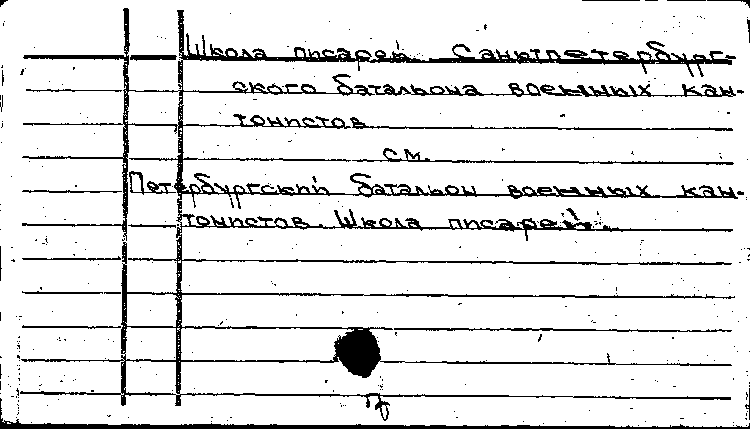 Школа писарей Санктпетербург-
ского батальона военных кан-
тонистов
см.
Петербургский батальон военных кан-
тонистов. Школа писарей.